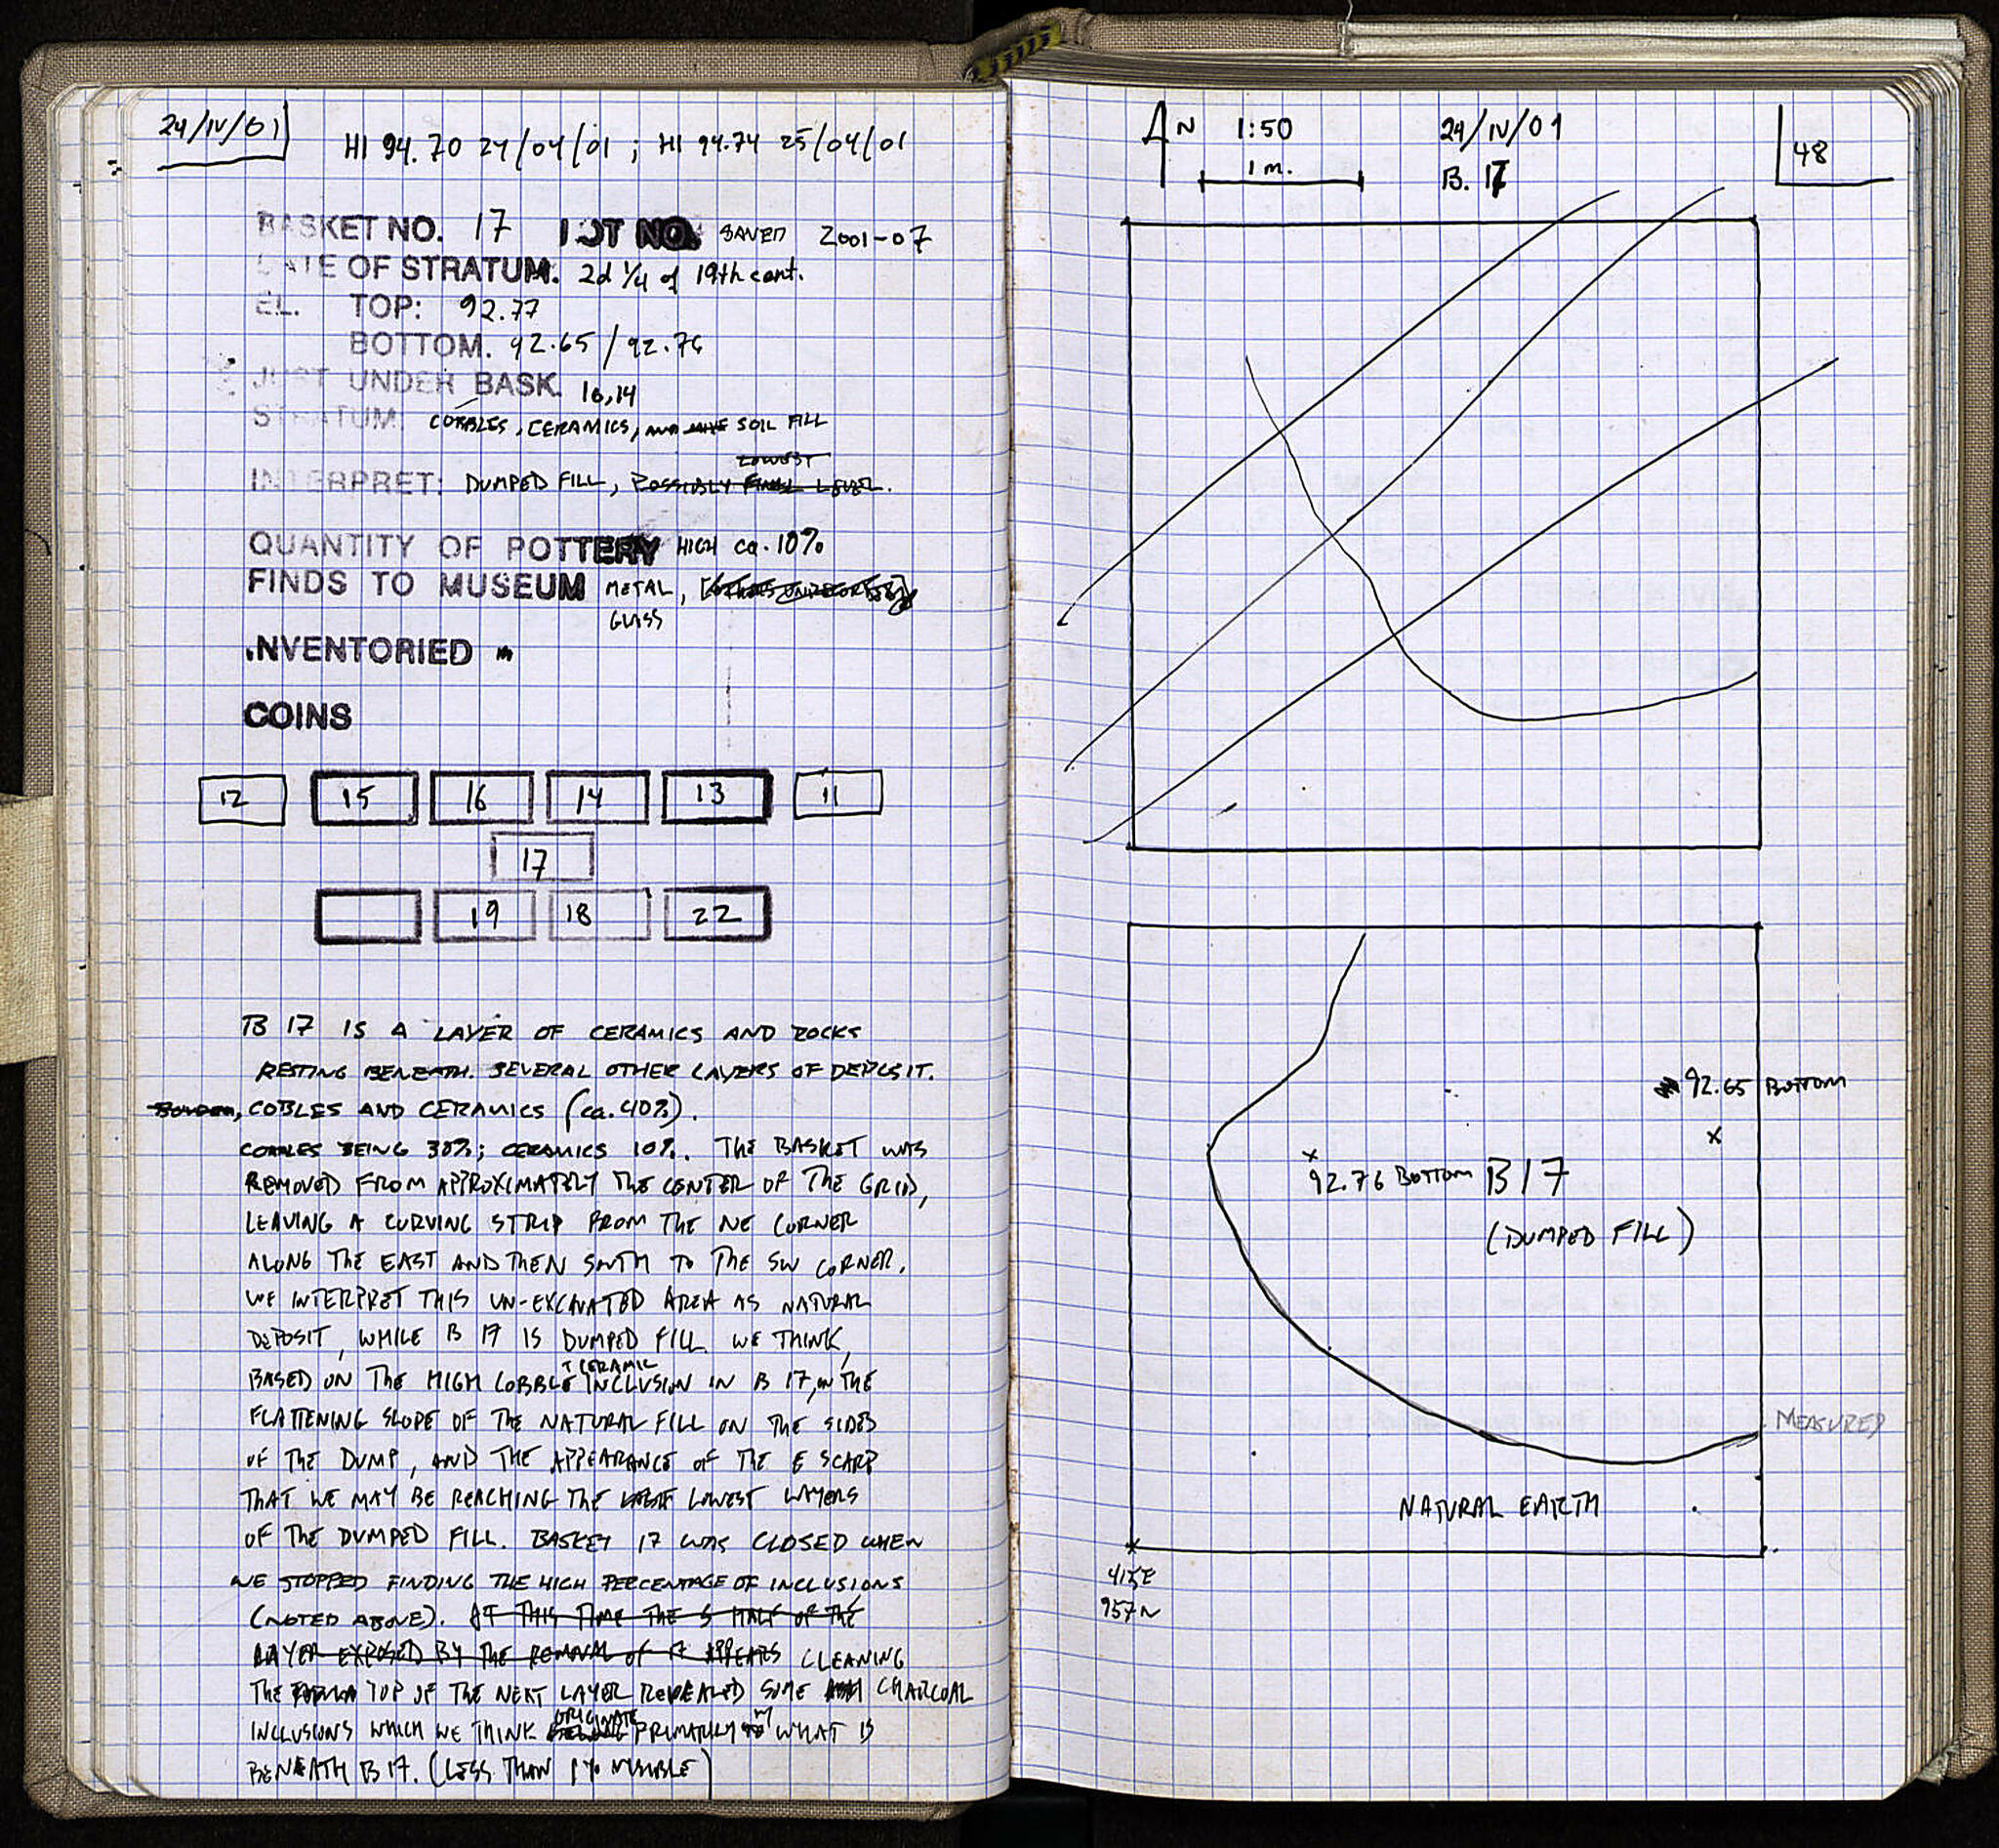 24/IV/01
HI 94.70 24/04/01 ; HI 94.74 25/04/01
BASKET NO. 17 LOT NO. SAVED 2001-07
DATE OF STRATUM. 2d 1/4 of 19th cent.
EL. TOP: 92.77
BOTTOM. 92.65 / 92.76
JUST UNDER BASK. 16,14
STRATUM: COBBLES, CERAMICS, SOIL FILL
LOWEST
INTERPRET: DUMPED FILL, POSSIBLY FINAL LEVEL.
QUANTITY OF POTTERY HIGH ca. 10%
FINDS TO MUSEUM METAL,
GLASS
INVENTORIED
COINS
12 15 16 14 13 11
17
19 18 22
B 17 IS A LAYER OF CERAMICS AND ROCKS
RESTING BENEATH SEVERAL OTHER LAYERS OF DEPOSIT.
COBLES AND CERAMICS (ca. 40%).
COBBLES BEING 30%; CERAMICS 10%. THE BASKET WAS
REMOVED FROM APPROXIMATELY THE CENTER OF THE GRID,
LEAVING A CURVING STRIP FROM THE NE CORNER
ALONG THE EAST AND THEN SOUTH TO THE SW CORNER.
WE INTERPRET THIS UN-EXCAVATED AREA AS NATURAL
DEPOSIT, WHILE B 17 IS DUMPED FILL. WE THINK,
+ CERAMIC
BASED ON THE HIGH COBBLE INCLUSION IN B 17, ON THE
FLATTENING SLOPE OF THE NATURAL FILL ON THE SIDES
OF THE DUMP, AND THE APPEARANCE OF THE E SCARP
THAT WE MAY BE REACHING THE LOWEST LAYERS
OF THE DUMPED FILL. BASKET 17 WAS CLOSED WHEN
WE STOPPED FINDING THE HIGH PERCENTAGE OF INCLUSIONS
(NOTED ABOVE). AT THIS TIME THE S HALF OF THE
LAYER EXPOSED BY THE REMOVAL OF 17 APPEARS CLEANING
THE TOP OF THE NEXT LAYER REVEALED SOME CHARCOAL
ORIGINATE
INCLUSIONS WHICH WE THINK PRIMARILY IN WHAT IS
BENEATH B 17. (LESS THAN 1% VISIBLE)
N 1:50 24/IV/01
1 m. B. 17
48
92.65 BOTTOM
92.76 BOTTOM B17
(DUMPED FILL)
MEASURED
NATURAL EARTH
415E
957N